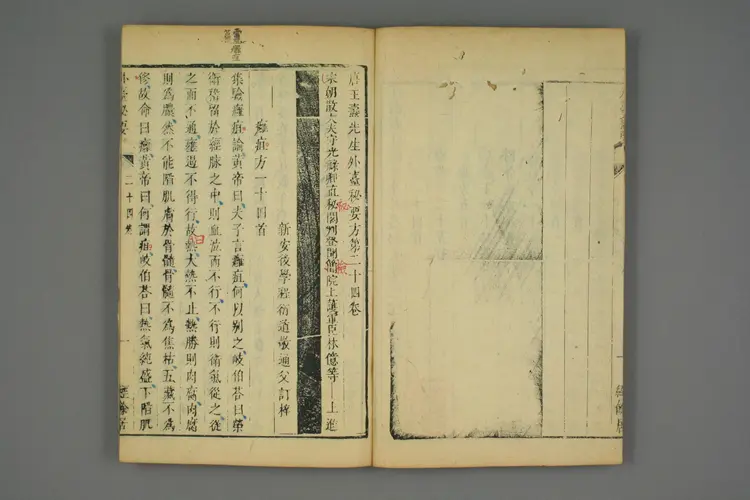 唐王燾先生外臺秘要方第二十四卷
宋朝散大夫守光祿卿直秘閣判登聞簡院上護軍臣林億等 上進
新安後學程衍道敬通父訂梓
癰疽方一十四首
集驗癰疽論黃帝曰夫子言癰疽何以別之岐伯荅曰榮
衛稽留於經脉之中則血泣而不行不行則衛氣從之從
之而不通壅遏不得行故熱大熱不止熱勝則肉腐肉腐
則為膿然不能陷肌膚於骨髓骨髓不為焦枯五藏不為
傷故命曰癰黃帝曰何謂疽岐伯荅曰熱氣純盛下陷肌
外臺秘要 二十四卷 一 經餘居
秘
檢
曰